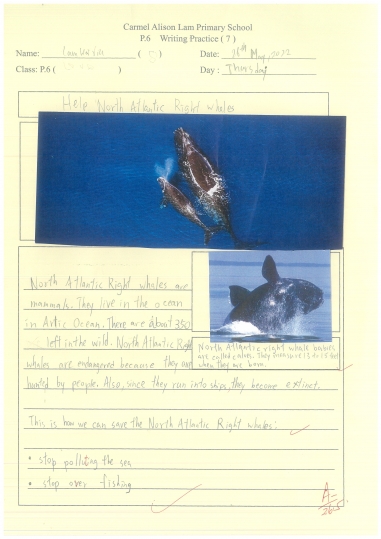 Carmel Alison Lam Primary School
P.6 Writing Practice ( 7 )
Name: ( 5 ) Date: 26th May, 2022
Class: P.6 ( ) Day : Thursday
Help North Atlantic Right whales
North Atlantic Right whales are
mammals. They live in the ocean
in Artic Ocean. There are about 350
left in the wild. North Atlantic Right
whales are endangered because they are
hunted by people. Also, since they run into ships, they become extinct.
North Atlantic right whale babies
are called calves. They
when they are born.
This is how we can save the North Atlantic Right whales:
• stop polluting the sea
• stop over fishing
A-
26/5